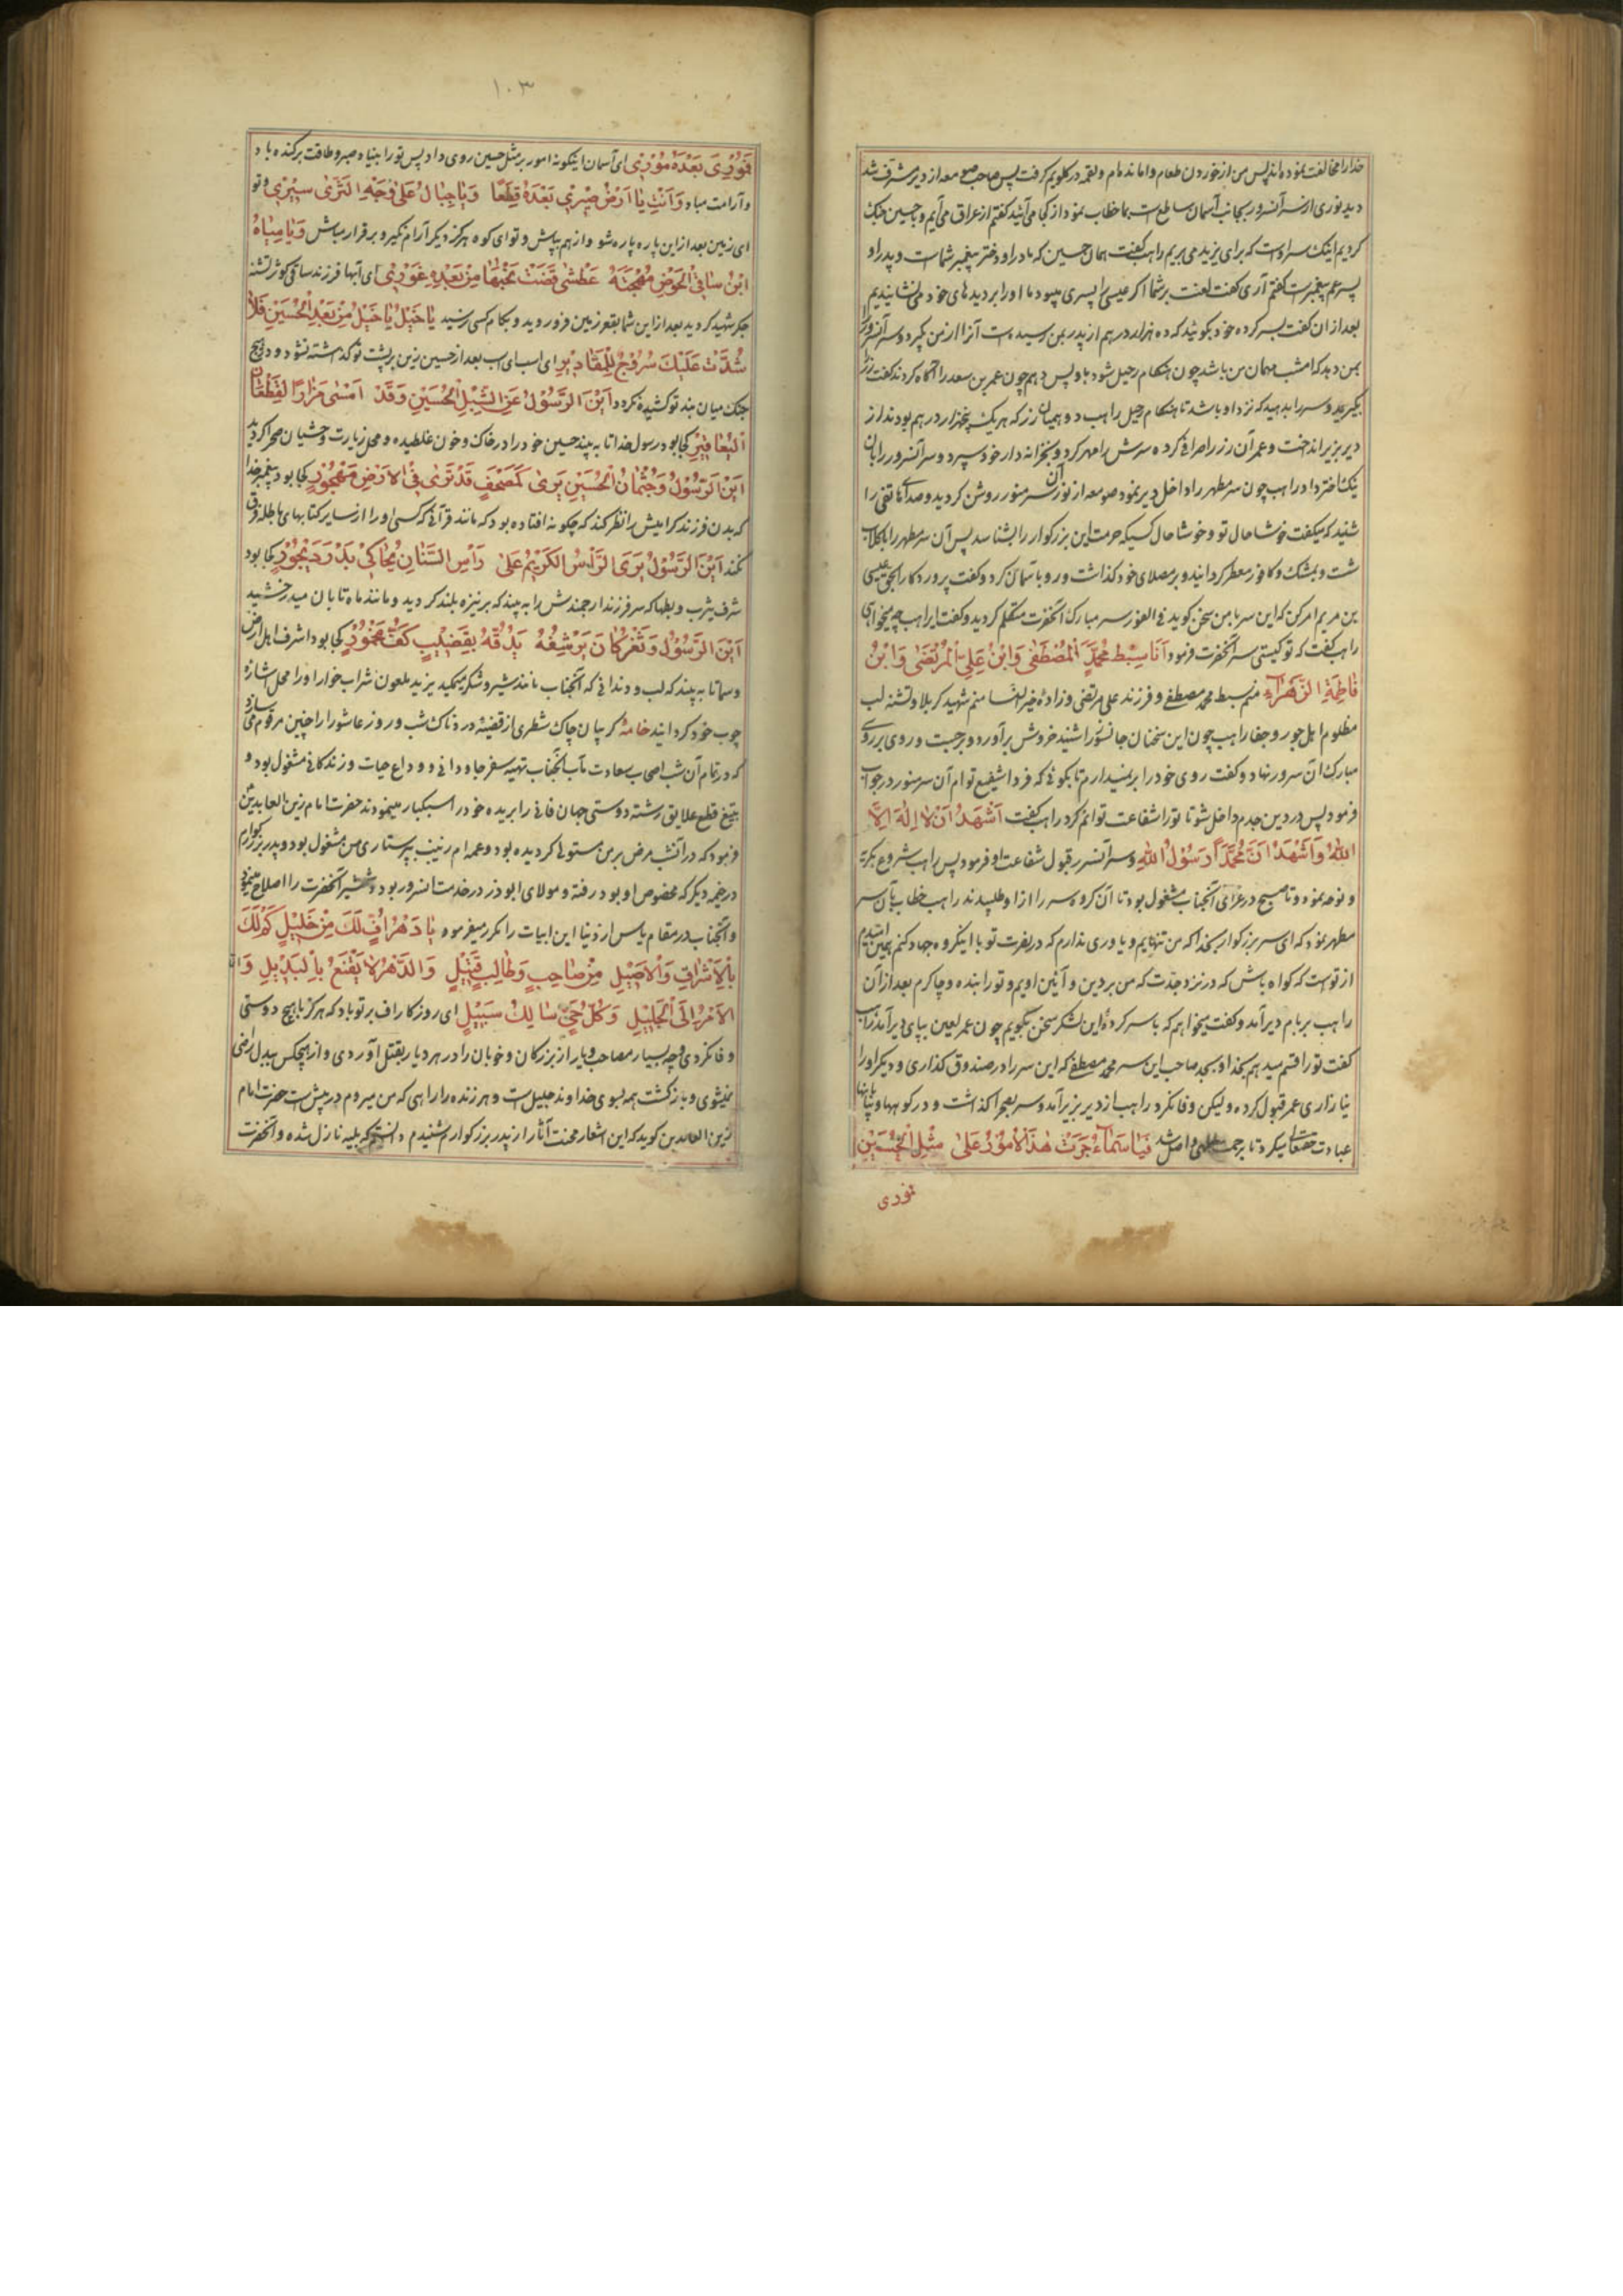 خدا را مخالفت نموده‌اند پس من از خوردن طعام واماندم و لقمه در گلویم گرفت پس صاحب صومعه از دیر مشرف شد
دید نوری از سر آنسرور بجانب آسمان ساطعست بما خطاب نمود از کجا می‌آئید گفتم از عراق می‌آیم و با حسین جنک
کردیم اینک سر اوست که برای یزید می‌بریم راهب گفت همان حسین که مادر او دختر پیغمبر شماست و پدر او
پسر عم پیغمبرست گفتم آری گفت لعنت بر شما اگر عیسی را پسری میبود ما او را بر دیده‌های خود می‌نشانیدیم
بعد از ان گفت بسر کرده خود بگوئید که ده هزار درهم از پدر بمن رسیده است آنرا از من گیرد و سر آنسرور را
بمن دهد که امشب مهمان من باشد چون هنگام رحیل شود باو پس دهم چون عمر بن سعد را آگاه کردند گفت زر را
بگیرید و سر را بدهید که نزد او باشد تا هنگام رحیل راهب دو همیان زر که هر یک پنجهزار درهم بود ندار از
دیر بزیر انداخت و عمر آن زر را صرافی کرده سرش را مهر کرد و بخزانه‌دار خود سپرد و سر آنسرور را بان
نیک اختر داد راهب چون سر مطهر را داخل دیر نمود صومعه از نور آن سر منور روشن گردید و صدای هاتفی را
شنید که میگفت خوشا حال تو و خوشا حال کسیکه حرمت این بزرگوار را بشناسد پس آن سر مطهر را بگلاب
شست و بمشک و کافور معطر گردانید و بر مصلای خود گذاشت و رو باسمان کرد و گفت پروردگارا بحق عیسی
بن مریم امر کن که این سر با من سخن گوید فی الفور سر مبارک آنحضرت متکلم گردید و گفت ایراهب چه میخواهی
راهب گفت که تو کیستی سر آنحضرت فرمود اَنَا سِبْطُ مُحَمَّدٍ الْمُصْطَفٰی وَابْنُ عَلِیٍّ الْمُرْتَضٰی وَابْنُ
فَاطِمَةِ الزَّهْرَاءِ منم سبط محمد مصطفی و فرزند علی مرتضی و زاده خیر النسا منم شهید کربلا و تشنه لب
مظلوم اهل جور و جفا راهب چون این سخنان جانسوز را شنید خروش برآورد و برجست و روی بر روی
مبارک آن سرور نهاد و گفت روی خود را بر نمیدارم تا بگوئی که فردا شفیع توام آن سر منور در جواب
فرمود پس در دین جدم داخل شو تا تو را شفاعت توانم کرد راهب گفت اَشْهَدُ اَنْ لَا اِلٰهَ اِلَّا
اللهُ وَاَشْهَدُ اَنَّ مُحَمَّدًا رَسُوْلُ اللهِ و سر آنسرور قبول شفاعت او فرمود پس راهب شروع بگریه
و نوحه نمود و تا صبح در عزای آنجناب مشغول بود تا آن گروه سر را از او طلبیدند راهب خطاب بآن سر
مطهر نمود که ای سر بزرگوار بخدا که من تنهایم و یاوری ندارم که در نصرت تو با اینگروه جهاد کنم همین امیدم
از توست که گواه باش که در نزد جدت که من بر دین و آئین اویم و تو را بنده و چاکرم بعد از آن
راهب بر بام دیر آمد و گفت میخواهم که با سر کرده این لشکر سخن بگویم چون عمر لعین بپای دیر آمد راهب
گفت تو را قسم میدهم بخدا و بجد صاحب این سر محمد مصطفی که این سر را در صندوق گذاری و دیگر او را
نیازاری عمر قبول کرده ولیکن وفا نکرد راهب از دیر بزیر آمد و سر بصحرا گذاشت و در کوهها و بیابانها
عبادت حقتعالی میکرد تا برحمت الهی واصل شد فَیَا سَمَاءُ جَرَتْ هٰذَا الْاُمُوْرُ عَلٰی مِثْلِ الْحُسَیْنِ
فوری
۱۰۳
فَمُوْرِیْ بَعْدَهُ مُوْرِیْ ای آسمان اینگونه امور بر مثل حسین روی داد پس تو را بنیاد صبر و طاقت برکنده باد
و آرامت مباد وَاَنْتِ یَا اَرْضُ صِیْرِیْ بَعْدَهُ قِطَعًا وَیَا جِبَالُ عَلٰی وَجْهِ الثَّرٰی سِیْرِیْ و تو
ای زمین بعد از این پاره پاره شو و از هم بپاش و تو ای کوه هرگز دیگر آرام نگیر و برقرار مباش وَیَا مِیَاهُ
ابْنُ سَاقِی الْحَوْضِ مُهْجَتُهُ عَطْشٰی قَضَتْ نَحْبَهَا مِنْ بَعْدِهِ غُوْرِیْ ای آبها فرزند ساقی کوثر تشنه
جگر شهید گردید بعد از این شما بقعر زمین فرو روید و بکام کسی مرسید یَا خَیْلُ یَا خَیْلُ مِنْ بَعْدِ الْحُسَیْنِ فَلَا
شُدَّتْ عَلَیْكَ سُرُوْجٌ لِلْمَقَادِیْرِ ای اسب ای اسب بعد از حسین زین بر پشت تو گذاشته نشود و در هیچ
جنک میان بند تو کشیده نگردد اَیْنَ الرَّسُوْلُ عَنِ الشِّبْلِ الْحُسَیْنِ وَقَدْ اَمْسٰی مَزَارًا لِقُطْعَانِ
الْیَعَافِیْرِ کجا بود رسول خدا تا به بیند حسین خود را در خاک و خون غلطیده و محل زیارت وحشیان صحرا گردید
اَیْنَ الرَّسُوْلُ وَجُثْمَانُ الْحُسَیْنِ یُرٰی کَمُصْحَفٍ قَدْ تَرٰی فِی الْاَرْضِ مَهْجُوْرٍ کجا بود پیغمبر خدا
که بدن فرزند گرامیش را نظر کند که چگونه افتاده بود که مانند قرآنی که کسی او را از سایر کتابهای باطله فرق
نکند اَیْنَ الرَّسُوْلُ یَرَی الرَّأْسَ الْکَرِیْمَ عَلٰی رَأْسِ السِّنَانِ یُحَاکِیْ بَدْرَ دَیْجُوْرٍ کجا بود
شرف یثرب و بطحا که سر فرزند ارجمندش را به بیند که بر نیزه بلند گردید و مانند ماه تابان میدرخشید
اَیْنَ الرَّسُوْلُ وَثَغْرٌ کَانَ یَرْشِفُهُ یَدُقُّهُ بِقَضِیْبٍ کَفُّ مَخْمُوْرٍ کجا بود اشرف اهل ارض
و سما تا به بیند که لب و دندانی که آنجناب مانند شیر و شکر میمکید یزید ملعون شراب خوار او را محل اشاره
چوب خود گردانید خامهٔ گریبان چاک شطری از قضیهٔ دردناک شب و روز عاشورا را چنین مرقوم میسازد
که در تمام آن شب اصحاب سعادت مآب آنجناب تهیه سفر جاودانی و وداع حیات و زندگانی مشغول بود و
بتیغ قطع علایق رشته دوستی جهان فانی را بریده خود را سبکبار مینمودند حضرت امام زین العابدین
فرمود که در آنشب مرض بر من مستولی گردیده بود و عمه‌ام زینب به پرستاری من مشغول بود و پدر بزرگوارم
در خیمه دیگر که مخصوص او بود رفته و مولای ابوذر در خدمت انسرور بود و شمشیر آنحضرت را اصلاح مینمود
و آنجناب در مقام یاس از دنیا این ابیات را مکرر میفرمود یَا دَهْرُ اُفٍّ لَكَ مِنْ خَلِیْلٍ کَمْ لَكَ
بِالْاِشْرَاقِ وَالْاَصِیْلِ مِنْ صَاحِبٍ وَطَالِبٍ قَتِیْلٍ وَالدَّهْرُ لَا یَقْنَعُ بِالْبَدِیْلِ وَاِنَّمَا
الْاَمْرُ اِلَی الْجَلِیْلِ وَکُلُّ حَیٍّ سَالِكٌ سَبِیْلٍ ای روزگار اف بر تو باد که هرگز با هیچ دوستی
وفا نکردی و چه بسیار مصاحب و یار از بزرگان و خوبان را در هر دیار بقتل آوردی و از هیچکس ببدل راضی
نمیشوی و بازگشت همه بسوی خداوند جلیل است و هر زنده را راهی که من میروم در پیش ست حضرت امام
زین العابدین گوید که این اشعار محنت آثار از پدر بزرگوارم شنیدم دانستم که بلیه نازل شده و آنحضرت